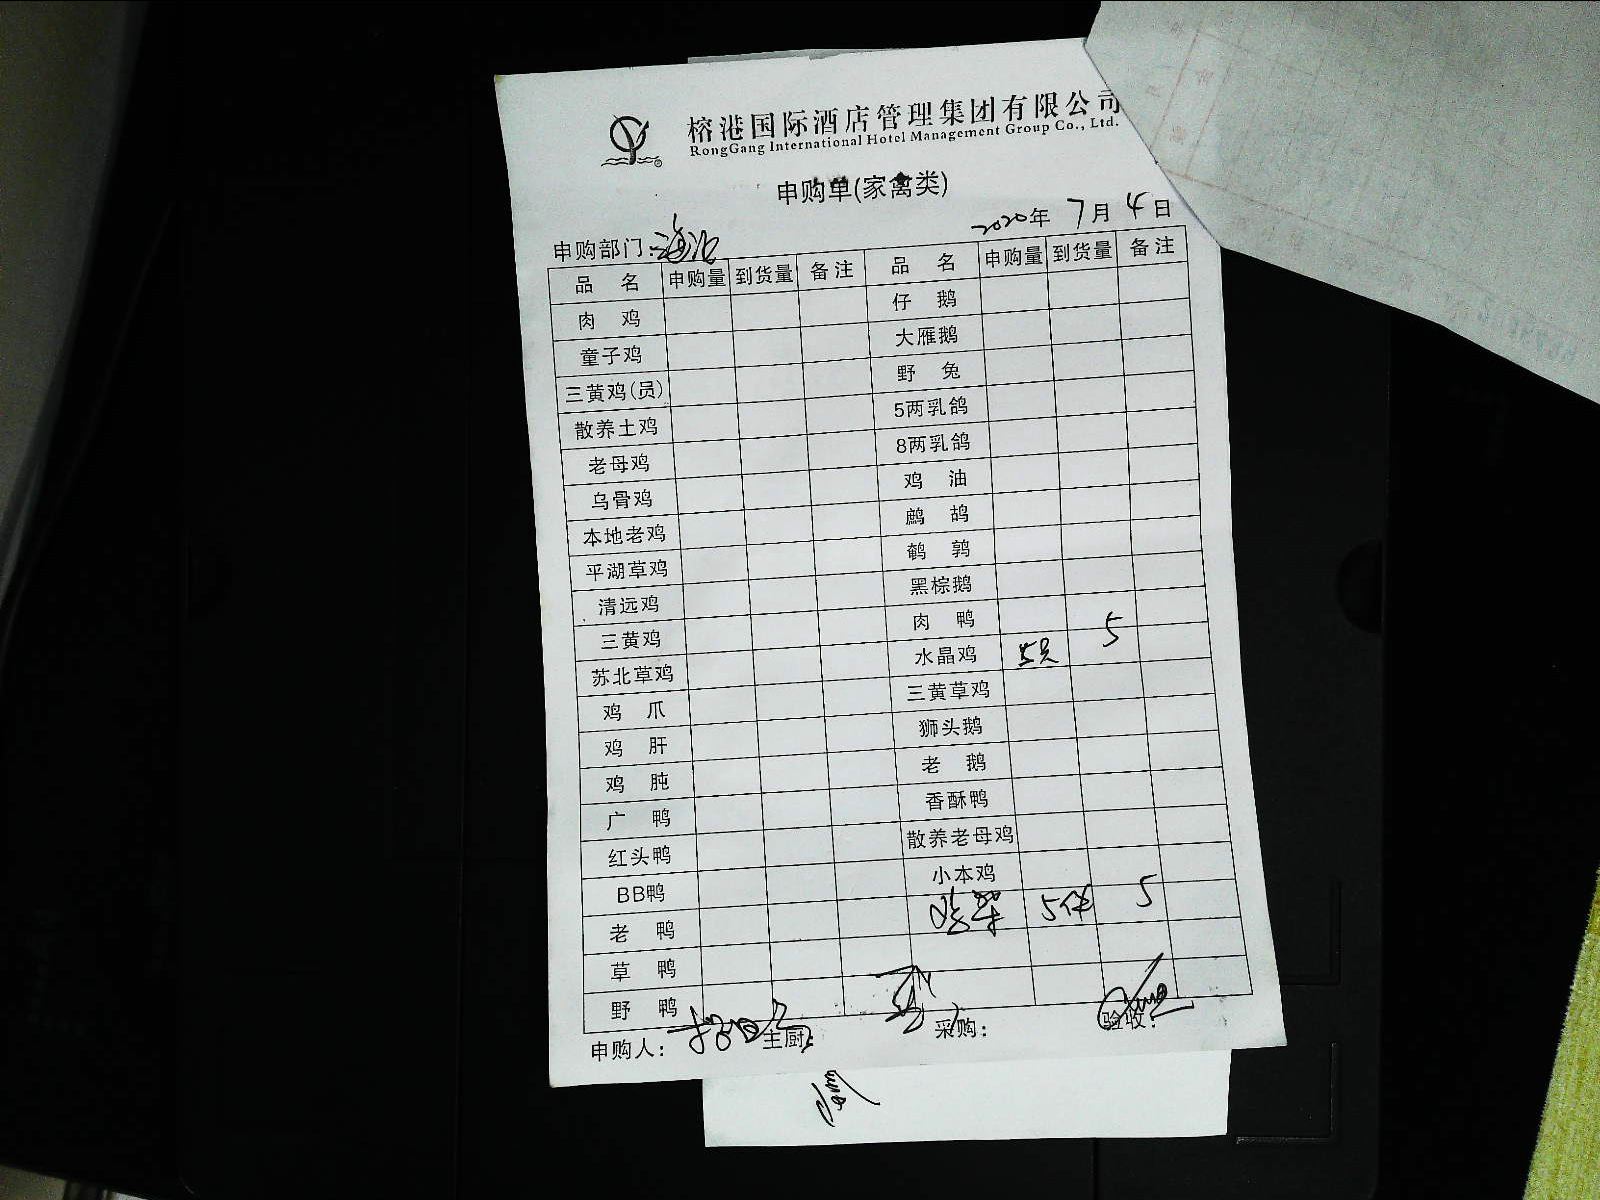 榕港国际酒店管理集团有限公司
RongGang International Hotel Management Group Co., Ltd.
申购单(家禽类)
申购部门: 2020年 7月 4日
品 名 申购量 到货量 备注 品 名 申购量 到货量 备注
肉 鸡 仔 鹅
童子鸡 大雁鹅
三黄鸡(员) 野 兔
散养土鸡 5两乳鸽
老母鸡 8两乳鸽
乌骨鸡 鸡 油
本地老鸡 鹧 鸪
平湖草鸡 鹌 鹑
清远鸡 黑棕鹅
三黄鸡 肉 鸭
苏北草鸡 水晶鸡 5只 5
鸡 爪 三黄草鸡
鸡 肝 狮头鹅
鸡 肫 老 鹅
广 鸭 香酥鸭
红头鸭 散养老母鸡
BB鸭 小本鸡
老 鸭 鸡架 5件 5
草 鸭
野 鸭
申购人: 主厨: 采购: 验收: